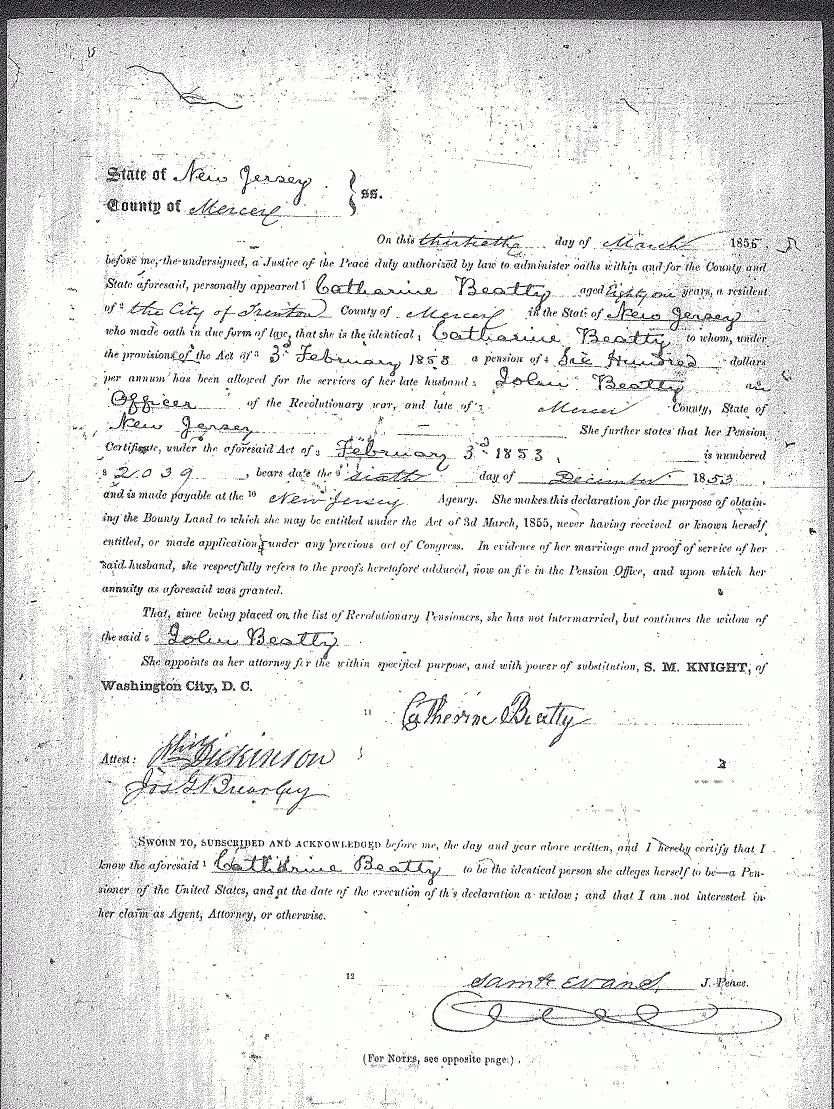 State of New Jersey } ss.
County of Mercer
On this thirtieth day of March 1855,
before me, the undersigned, a Justice of the Peace duly authorized by law to administer oaths within and for the County and
State aforesaid, personally appeared 1 Catharine Beatty aged Eighty one years, a resident
of 2 the City of Trenton County of Mercer in the State of New Jersey
who made oath in due form of law, that she is the identical 1 Catharine Beatty to whom, under
the provisions of the Act of 3 3d February 1853 a pension of 4 Six Hundred dollars
per annum has been allowed for the services of her late husband 5 John Beatty an
Officer of the Revolutionary war, and late of 7 Mercer County, State of
New Jersey She further states that her Pension
Certificate, under the aforesaid Act of 3 February 3d 1853, is numbered
8 2039, bears date the 9 sixth day of December 1853,
and is made payable at the 10 New Jersey Agency. She makes this declaration for the purpose of obtain-
ing the Bounty Land to which she may be entitled under the Act of 3d March, 1855, never having received or known herself
entitled, or made application, under any previous act of Congress. In evidence of her marriage and proof of service of her
said husband, she respectfully refers to the proofs heretofore adduced, now on file in the Pension Office, and upon which her
annuity as aforesaid was granted.
That, since being placed on the list of Revolutionary Pensioners, she has not intermarried, but continues the widow of
the said 5 John Beatty
She appoints as her attorney for the within specified purpose, and with power of substitution, S. M. KNIGHT, of
Washington City, D. C.
11 Catherine Beatty
Attest: Dickinson
Jos G Brearley
SWORN TO, SUBSCRIBED AND ACKNOWLEDGED before me, the day and year above written, and I hereby certify that I
know the aforesaid 1 Catharine Beatty to be the identical person she alleges herself to be—a Pen-
sioner of the United States, and at the date of the execution of this declaration a widow; and that I am not interested in
her claim as Agent, Attorney, or otherwise.
12 Sam A Evans J. Peace.
(For NOTES, see opposite page.)